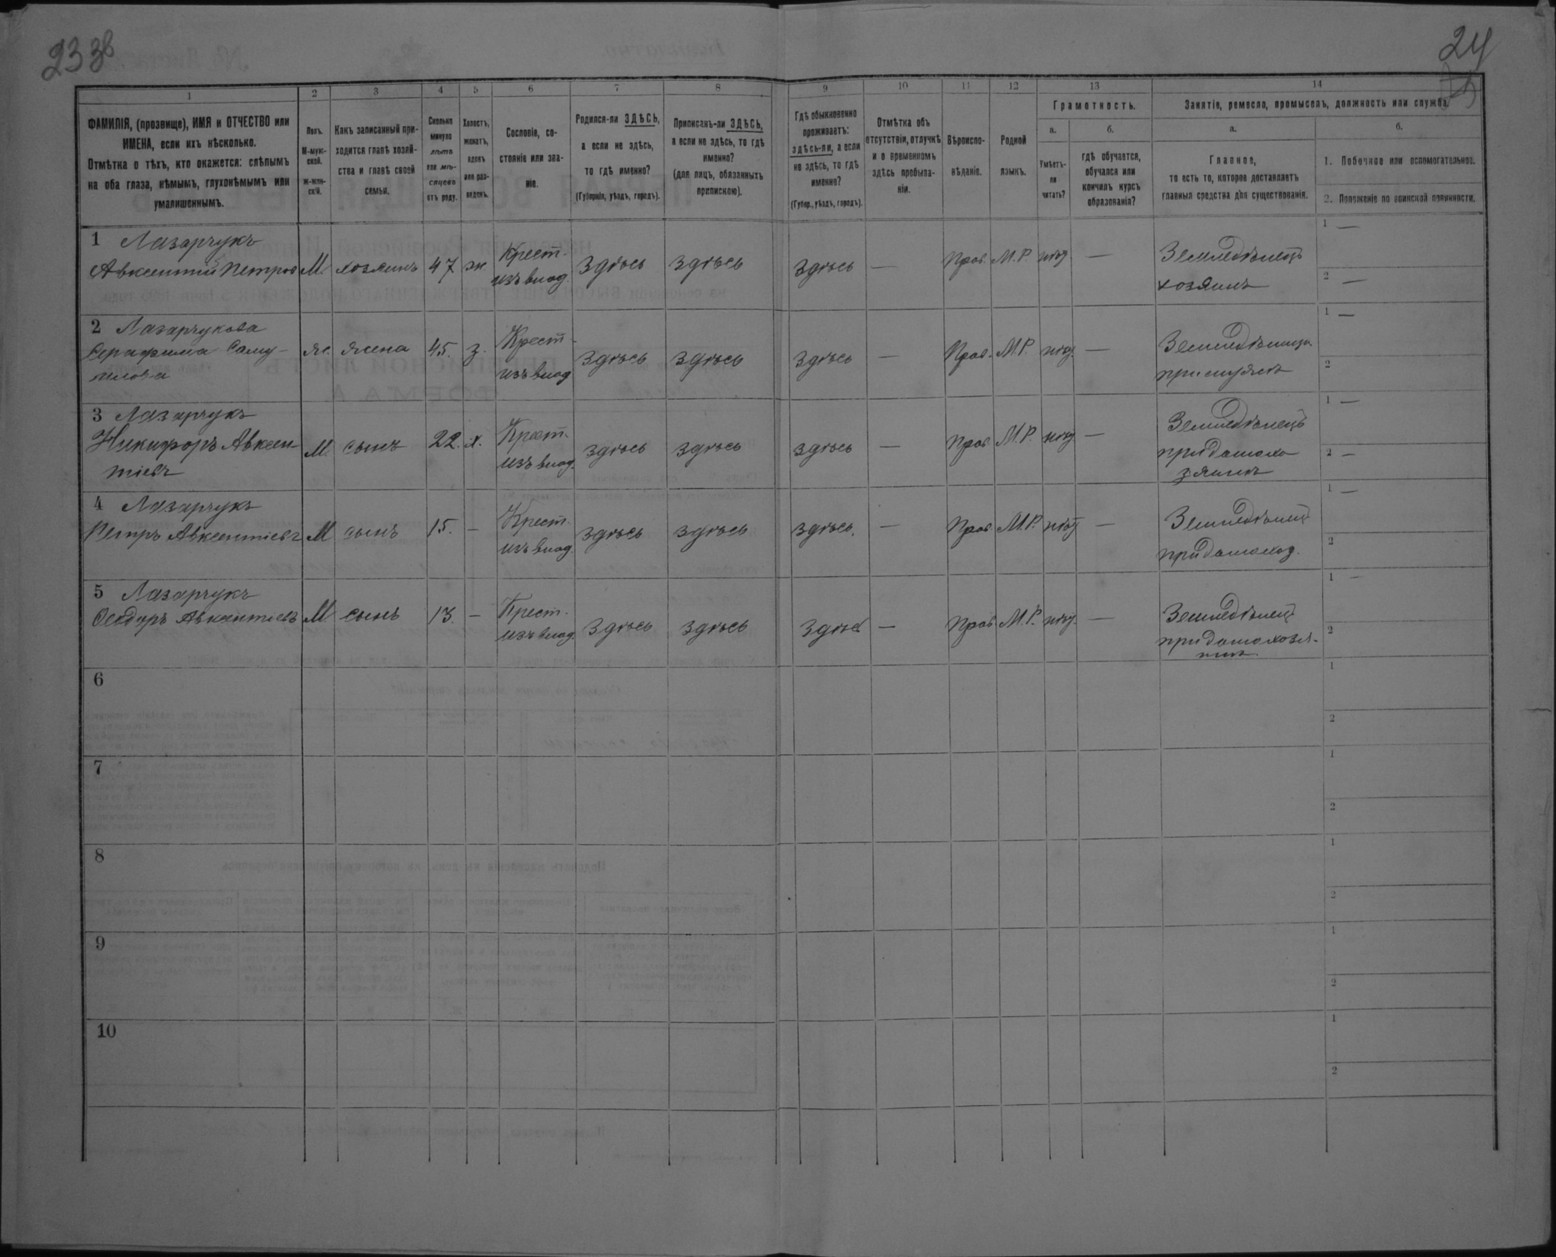 23 зв
24
1
2
3
4
5
6
7
8
9
10
11
12
13
14
ФАМИЛІЯ, (прозвище), ИМЯ и ОТЧЕСТВО или
ИМЕНА, если ихъ нѣсколько.
Отмѣтка о тѣхъ, кто окажется: слѣпымъ
на оба глаза, нѣмымъ, глухонѣмымъ или
умалишеннымъ.
Полъ.
М-муж-
ской.
Ж-жен-
скій.
Какъ записанный при-
ходится главѣ хозяй-
ства и главѣ своей
семьи.
Сколько
минуло
лѣтъ
или мѣ-
сяцевъ
отъ роду.
Холостъ,
женатъ,
вдовъ
или раз-
веденъ.
Сословіе, со-
стояніе или зва-
ніе.
Родился-ли ЗДѢСЬ,
а если не здѣсь,
то гдѣ именно?
(Губернія, уѣздъ, городъ).
Приписанъ-ли ЗДѢСЬ,
а если не здѣсь, то гдѣ
именно?
(для лицъ, обязанныхъ
припискою).
Гдѣ обыкновенно
проживаетъ:
здѣсь-ли, а если
не здѣсь, то гдѣ
именно?
(Губер., уѣздъ, городъ).
Отмѣтка объ
отсутствіи, отлучкѣ
и о временномъ
здѣсь пребыва-
ніи.
Вѣроиспо-
вѣданіе.
Родной
языкъ.
Грамотность.
а.
Умѣетъ-
ли
читать?
б.
гдѣ обучается,
обучался или
кончилъ курсъ
образованія?
Занятіе, ремесло, промыселъ, должность или служба.
а.
Главное,
то есть то, которое доставляетъ
главныя средства для существованія.
б.
1. Побочное или вспомогательное.
2. Положеніе по воинской повинности.
1 Лазарчукъ
Авксентій Петровъ М хозяинъ 47 ж Крест. изъ влад здѣсь здѣсь здѣсь — Прав. М.Р. нѣт — Земледѣлецъ хозяинъ
1 —
2 —
2 Лазарчукова
Серафима Саму-
илова ж. жена 45. з. Крест. изъ влад здѣсь здѣсь здѣсь — Прав. М.Р. нѣт —
1 —
2
3 Лазарчукъ
Никифоръ Авксен
тіевъ М сынъ 22. х. Крест. изъ влад. здѣсь здѣсь здѣсь — Прав М.Р. нѣт — Земледѣлецъ
1 —
2 —
4 Лазарчукъ
Петръ Авксентіевъ М сынъ 15. — Крест. изъ влад. здѣсь здѣсь здѣсь. — Прав М.Р. нѣт — Земледѣлец
1 —
2
5 Лазарчукъ
Авксентіевъ М сынъ 13 — Крест. изъ влад здѣсь здѣсь здѣсь — Прав М.Р. нѣт — Земледѣлец
1 —
2
6
1
2
7
1
2
8
1
2
9
1
2
10
1
2